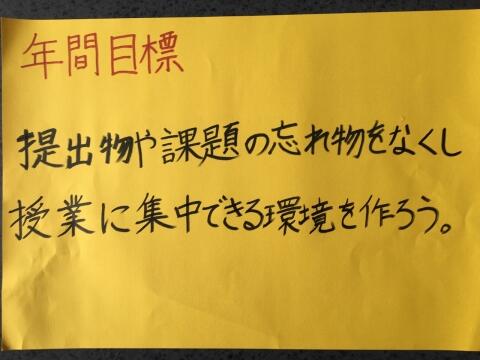 年間目標
提出物や課題の忘れ物をなくし
授業に集中できる環境を作ろう。